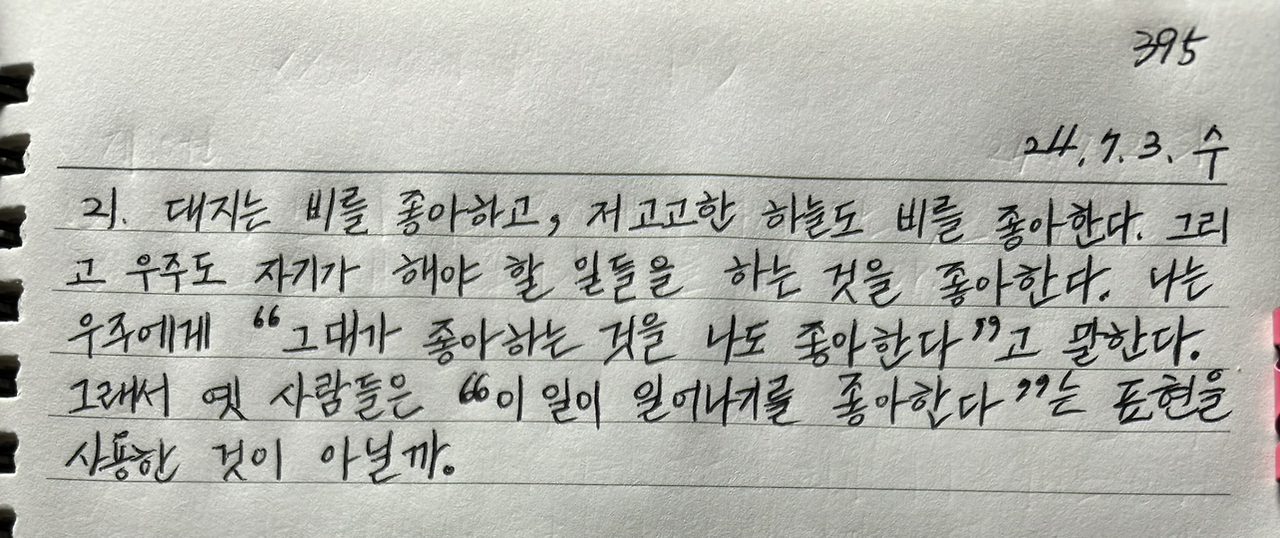 395
24. 7. 3. 수
21. 대지는 비를 좋아하고, 저 고고한 하늘도 비를 좋아한다. 그리
고 우주도 자기가 해야 할 일들을 하는 것을 좋아한다. 나는
우주에게 “그대가 좋아하는 것을 나도 좋아한다”고 말한다.
그래서 옛 사람들은 “이 일이 일어나기를 좋아한다”는 표현을
사용한 것이 아닐까.